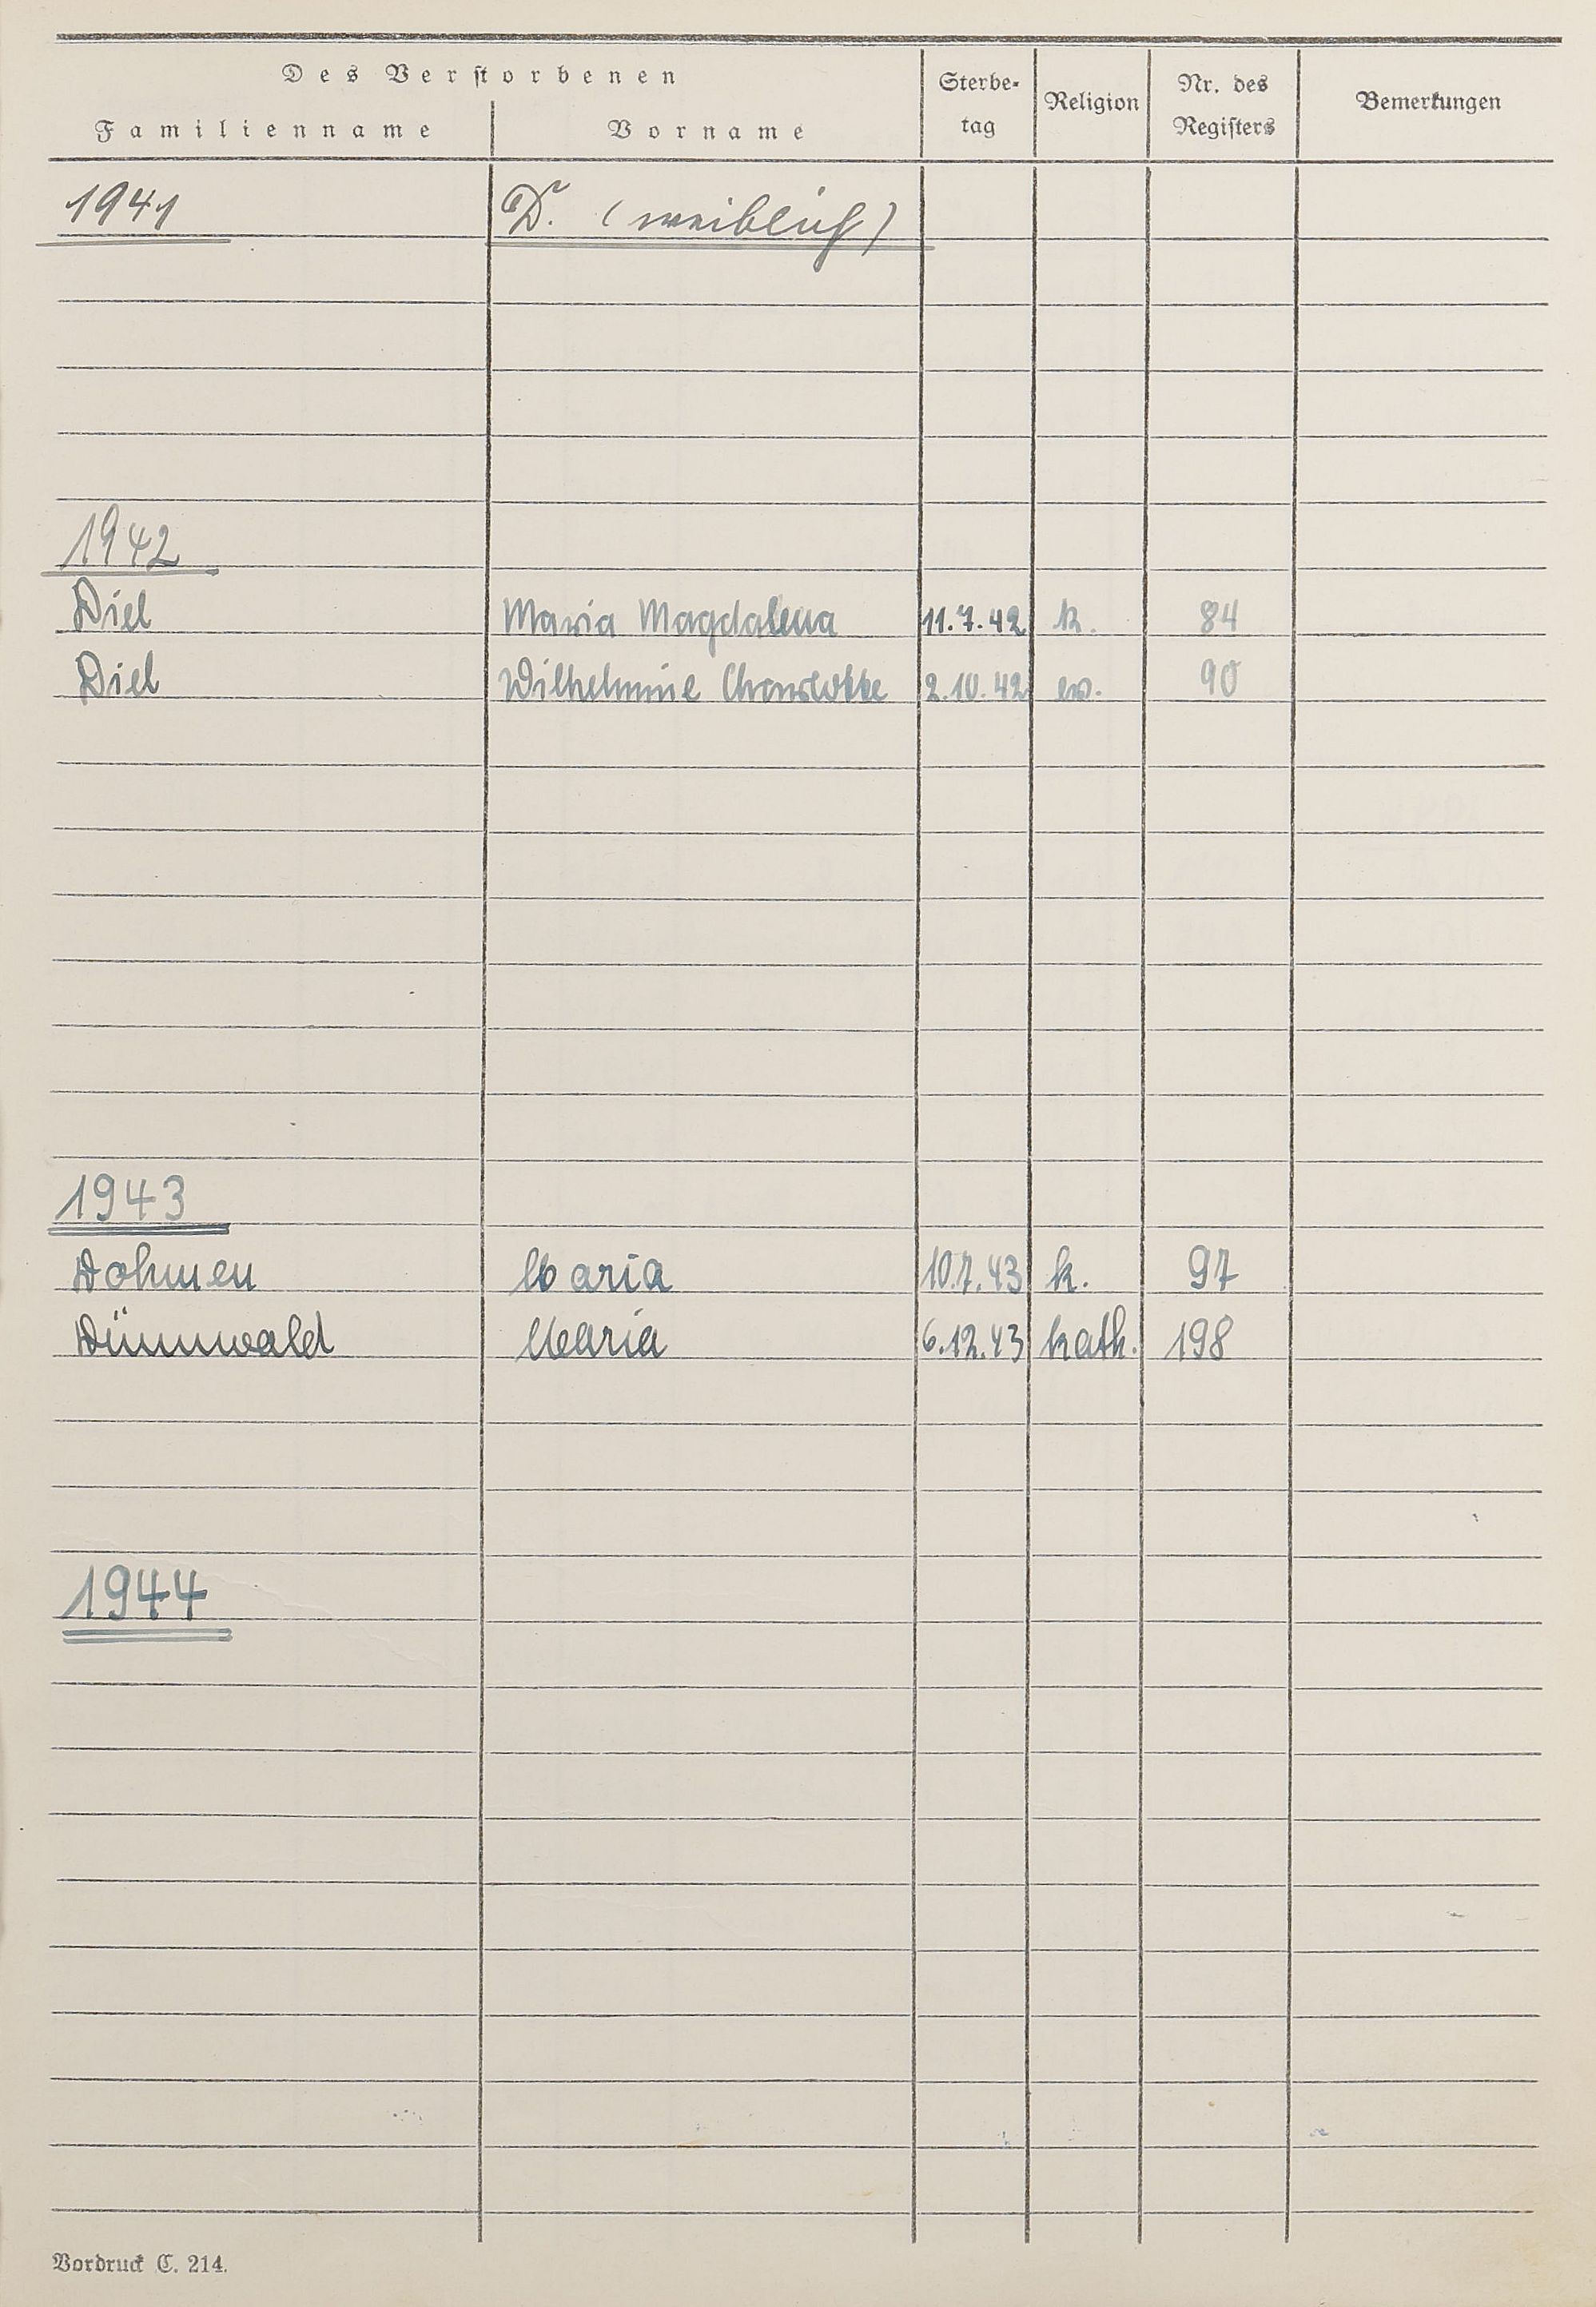 Des Verstorbenen
Familienname Vorname Sterbe-tag Religion Nr. des Registers Bemerkungen
1941 D. (weiblich)
1942
Diel Maria Magdalena 11.7.42 k. 84
Diel Wilhelmine 2.10.42 ev. 90
1943
Dohmen Maria 10.7.43 k. 97
Dünnwald Maria 6.12.43 kath. 198
1944
Vordruck C. 214.